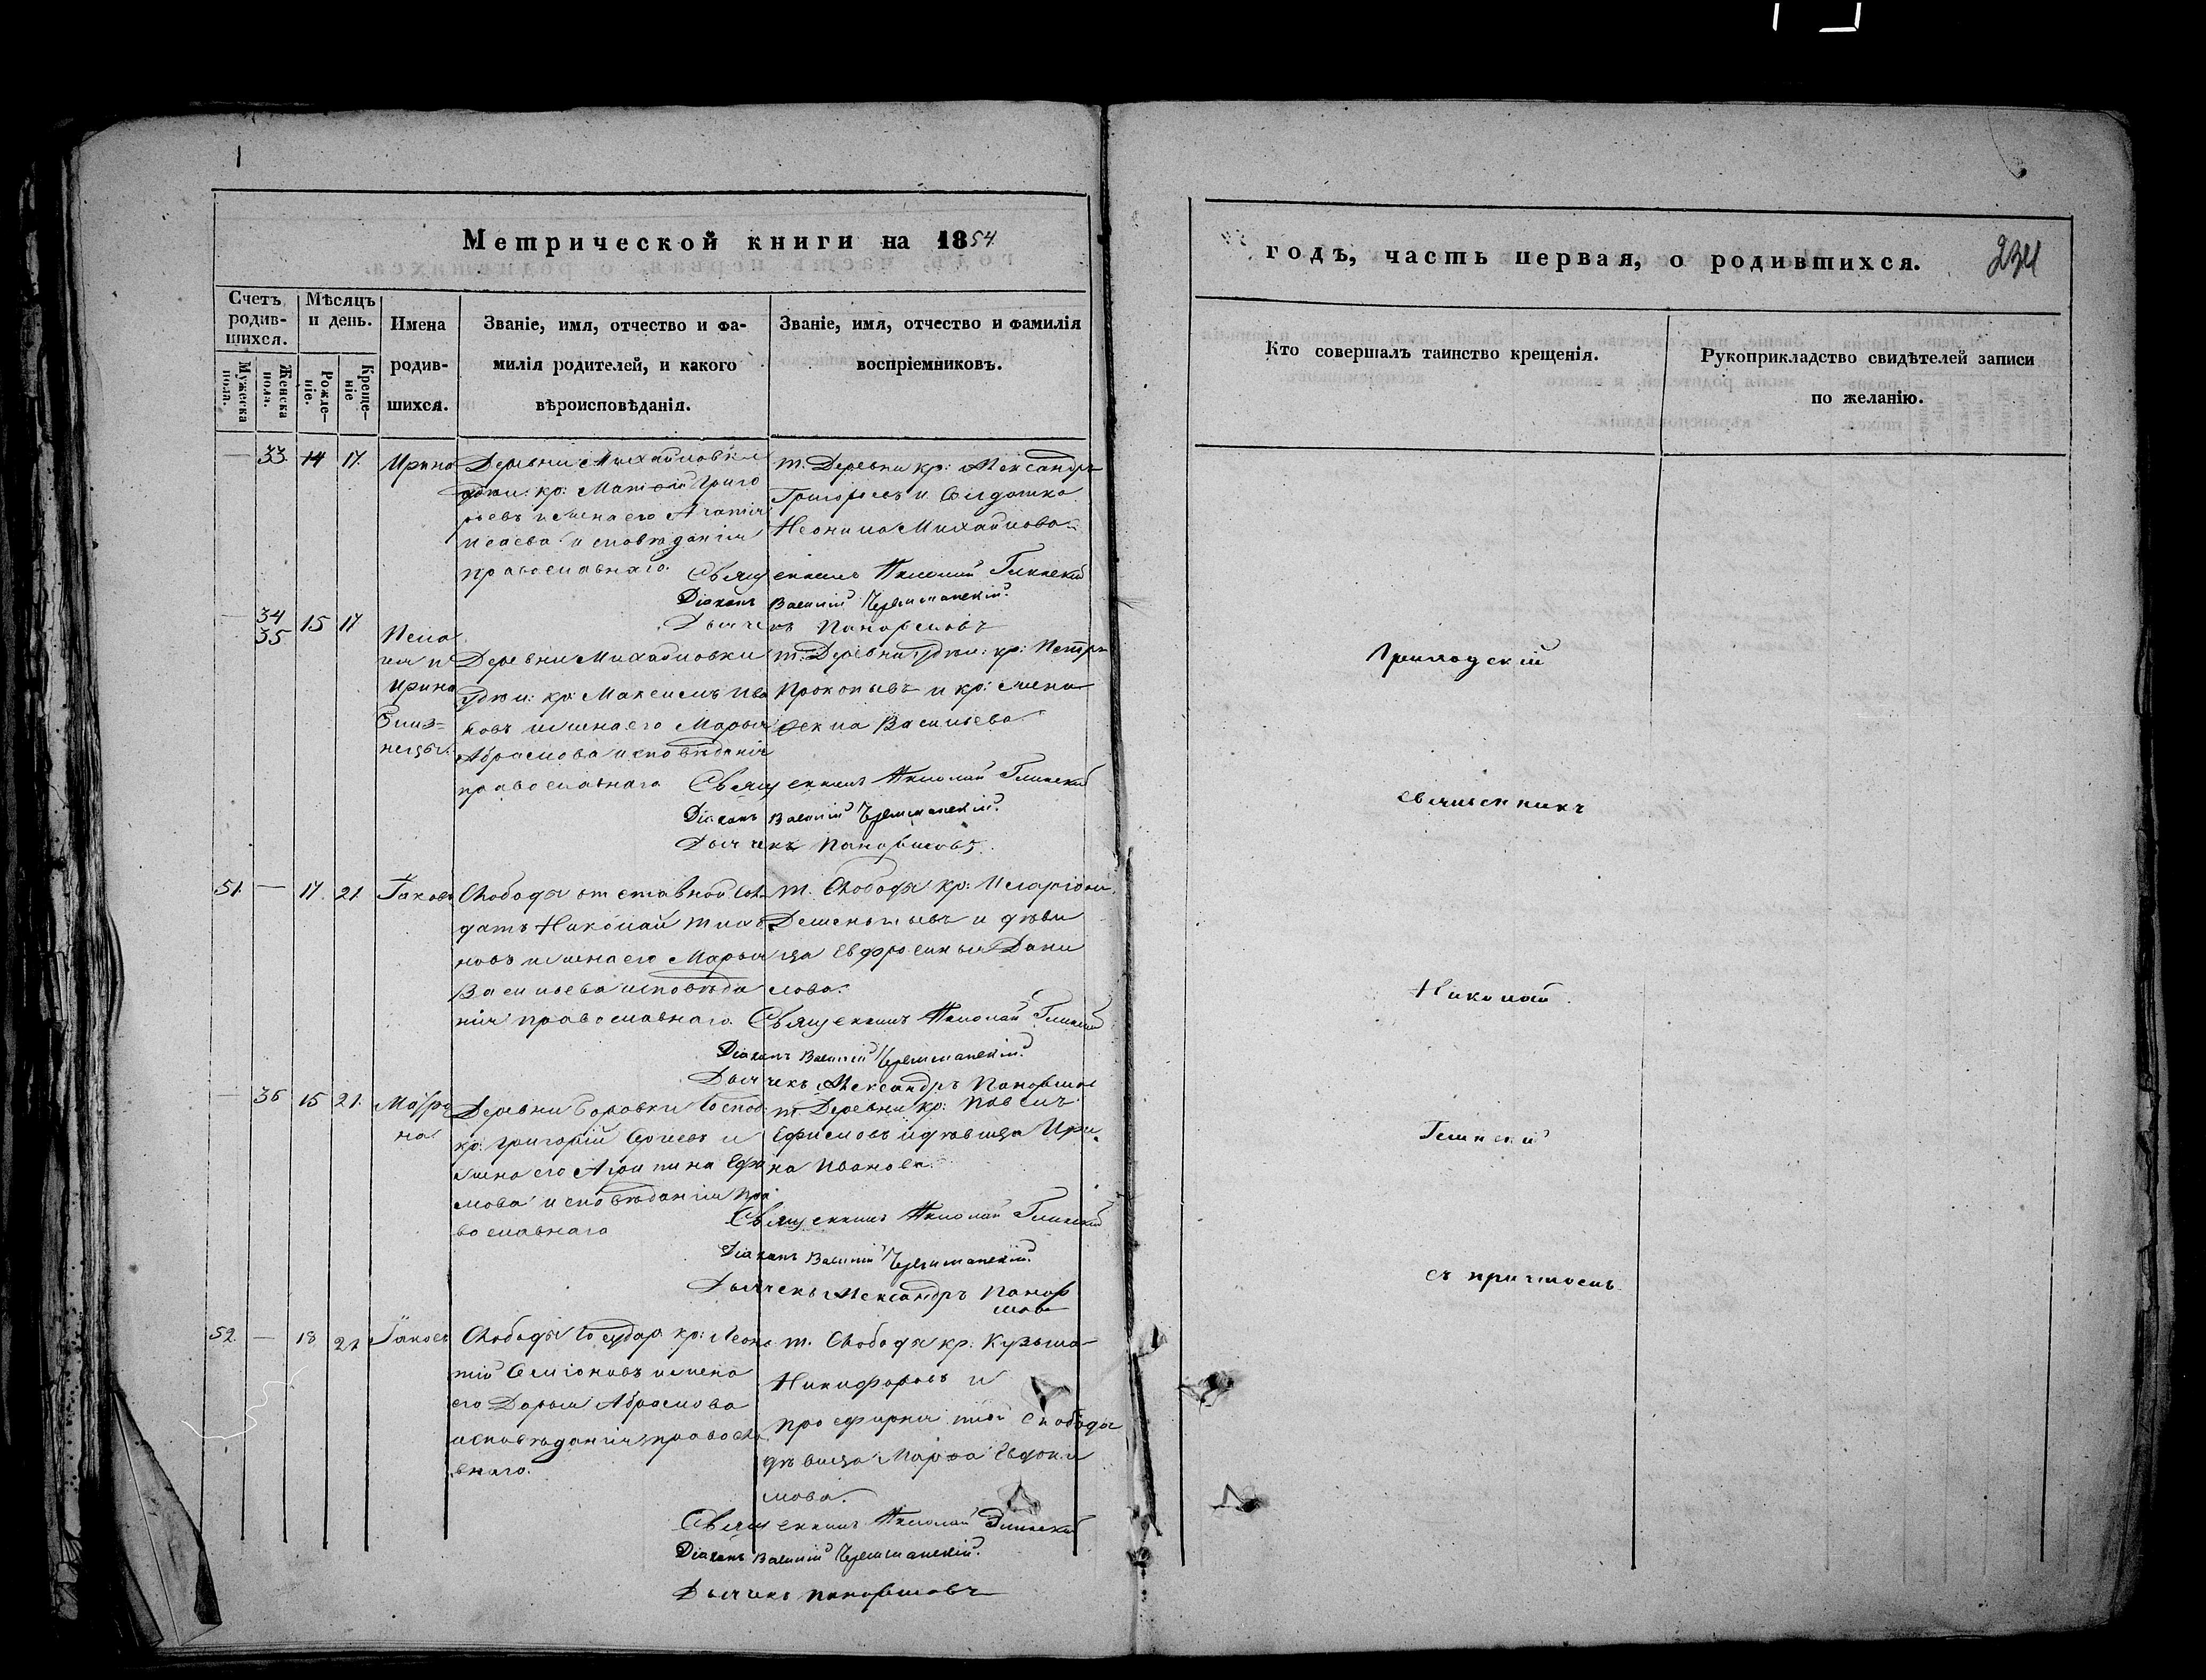 Метрической книги на 1854
годъ, часть первая, о родившихся.
234
Счетъ родив-шихся.
Мужеска пола.
Женска пола.
Мѣсяцъ и день.
Рожде-ніе.
Креще-ніе
Имена
родив-
шихся.
Званіе, имя, отчество и фа-
милія родителей, и какого
вѣроисповѣданія.
Званіе, имя, отчество и фамилія
воспріемниковъ.
Кто совершалъ таинство крещенія.
Рукоприкладство свидѣтелей записи
по желанію.
— 33 14 17. Ирина
Деревни Михайловки
удѣл: кр: Матѳей Григо
рьевъ и жена его Агапія
Исаева исповѣданія
православнаго.
т. Деревни кр: Александръ
Григорьевъ и Солдатка
Неонила Михайлова
Священникъ Николай Глинскій
Діаконъ Василій Черемшанскій.
Дьячекъ Панормовъ
— 34
35 15 17
Пела
гія и
Ирина
Близ-
нецы.
Деревни Михайловки
удѣл: кр: Максимъ Ива
новъ и жена его Марья
Абрамова исповѣданія
православнаго
т. Деревни удѣл: кр: Петръ
Прокопьевъ и кр: жена
Ѳекла Васильева
Священникъ Николай Глинскій
Діаконъ Василій Черемшанскій.
Дьячекъ Панормовъ.
51. — 17. 21. Іаковъ
Слободы отставной Сол
датъ Николай
новъ и жена его Марья
Васильева исповѣда
нія православнаго.
т. Слободы кр: Иларіонъ
Деменьтьевъ и дѣви
ца Евфросинья Дани
лова.
Священникъ Николай Глинскій
Діаконъ Василій Черемшанскій.
Дьячекъ Александръ Панормов
— 36 15 21. Матре
на
Деревни Боровки Господ:
кр: Григорій и
жена его Агрипина Ефи
мова исповѣданія пра
вославнаго
т. Деревни кр: Павелъ
Ефимовъ и дѣвица Ири
на Иванова.
Священникъ Николай Глинскій
Діаконъ Василій Черемшанскій.
Дьячекъ Александръ Панор
мовъ
52. — 18 21 Іаковъ
Слободы Государ: кр: Леон
тій Семіоновъ и жена
его Дарья Абрамова
исповѣданія правосла
внаго.
т. Слободы кр: Кузьма
Никифоровъ и
просфирня той Слободы
дѣвица Марѳа Евдоки
мова.
Священникъ Николай Глинскій
Діаконъ Василій Черемшанскій.
Дьячекъ Панормовъ
Приходскій
священникъ
Николай
Глинскій
съ причтомъ